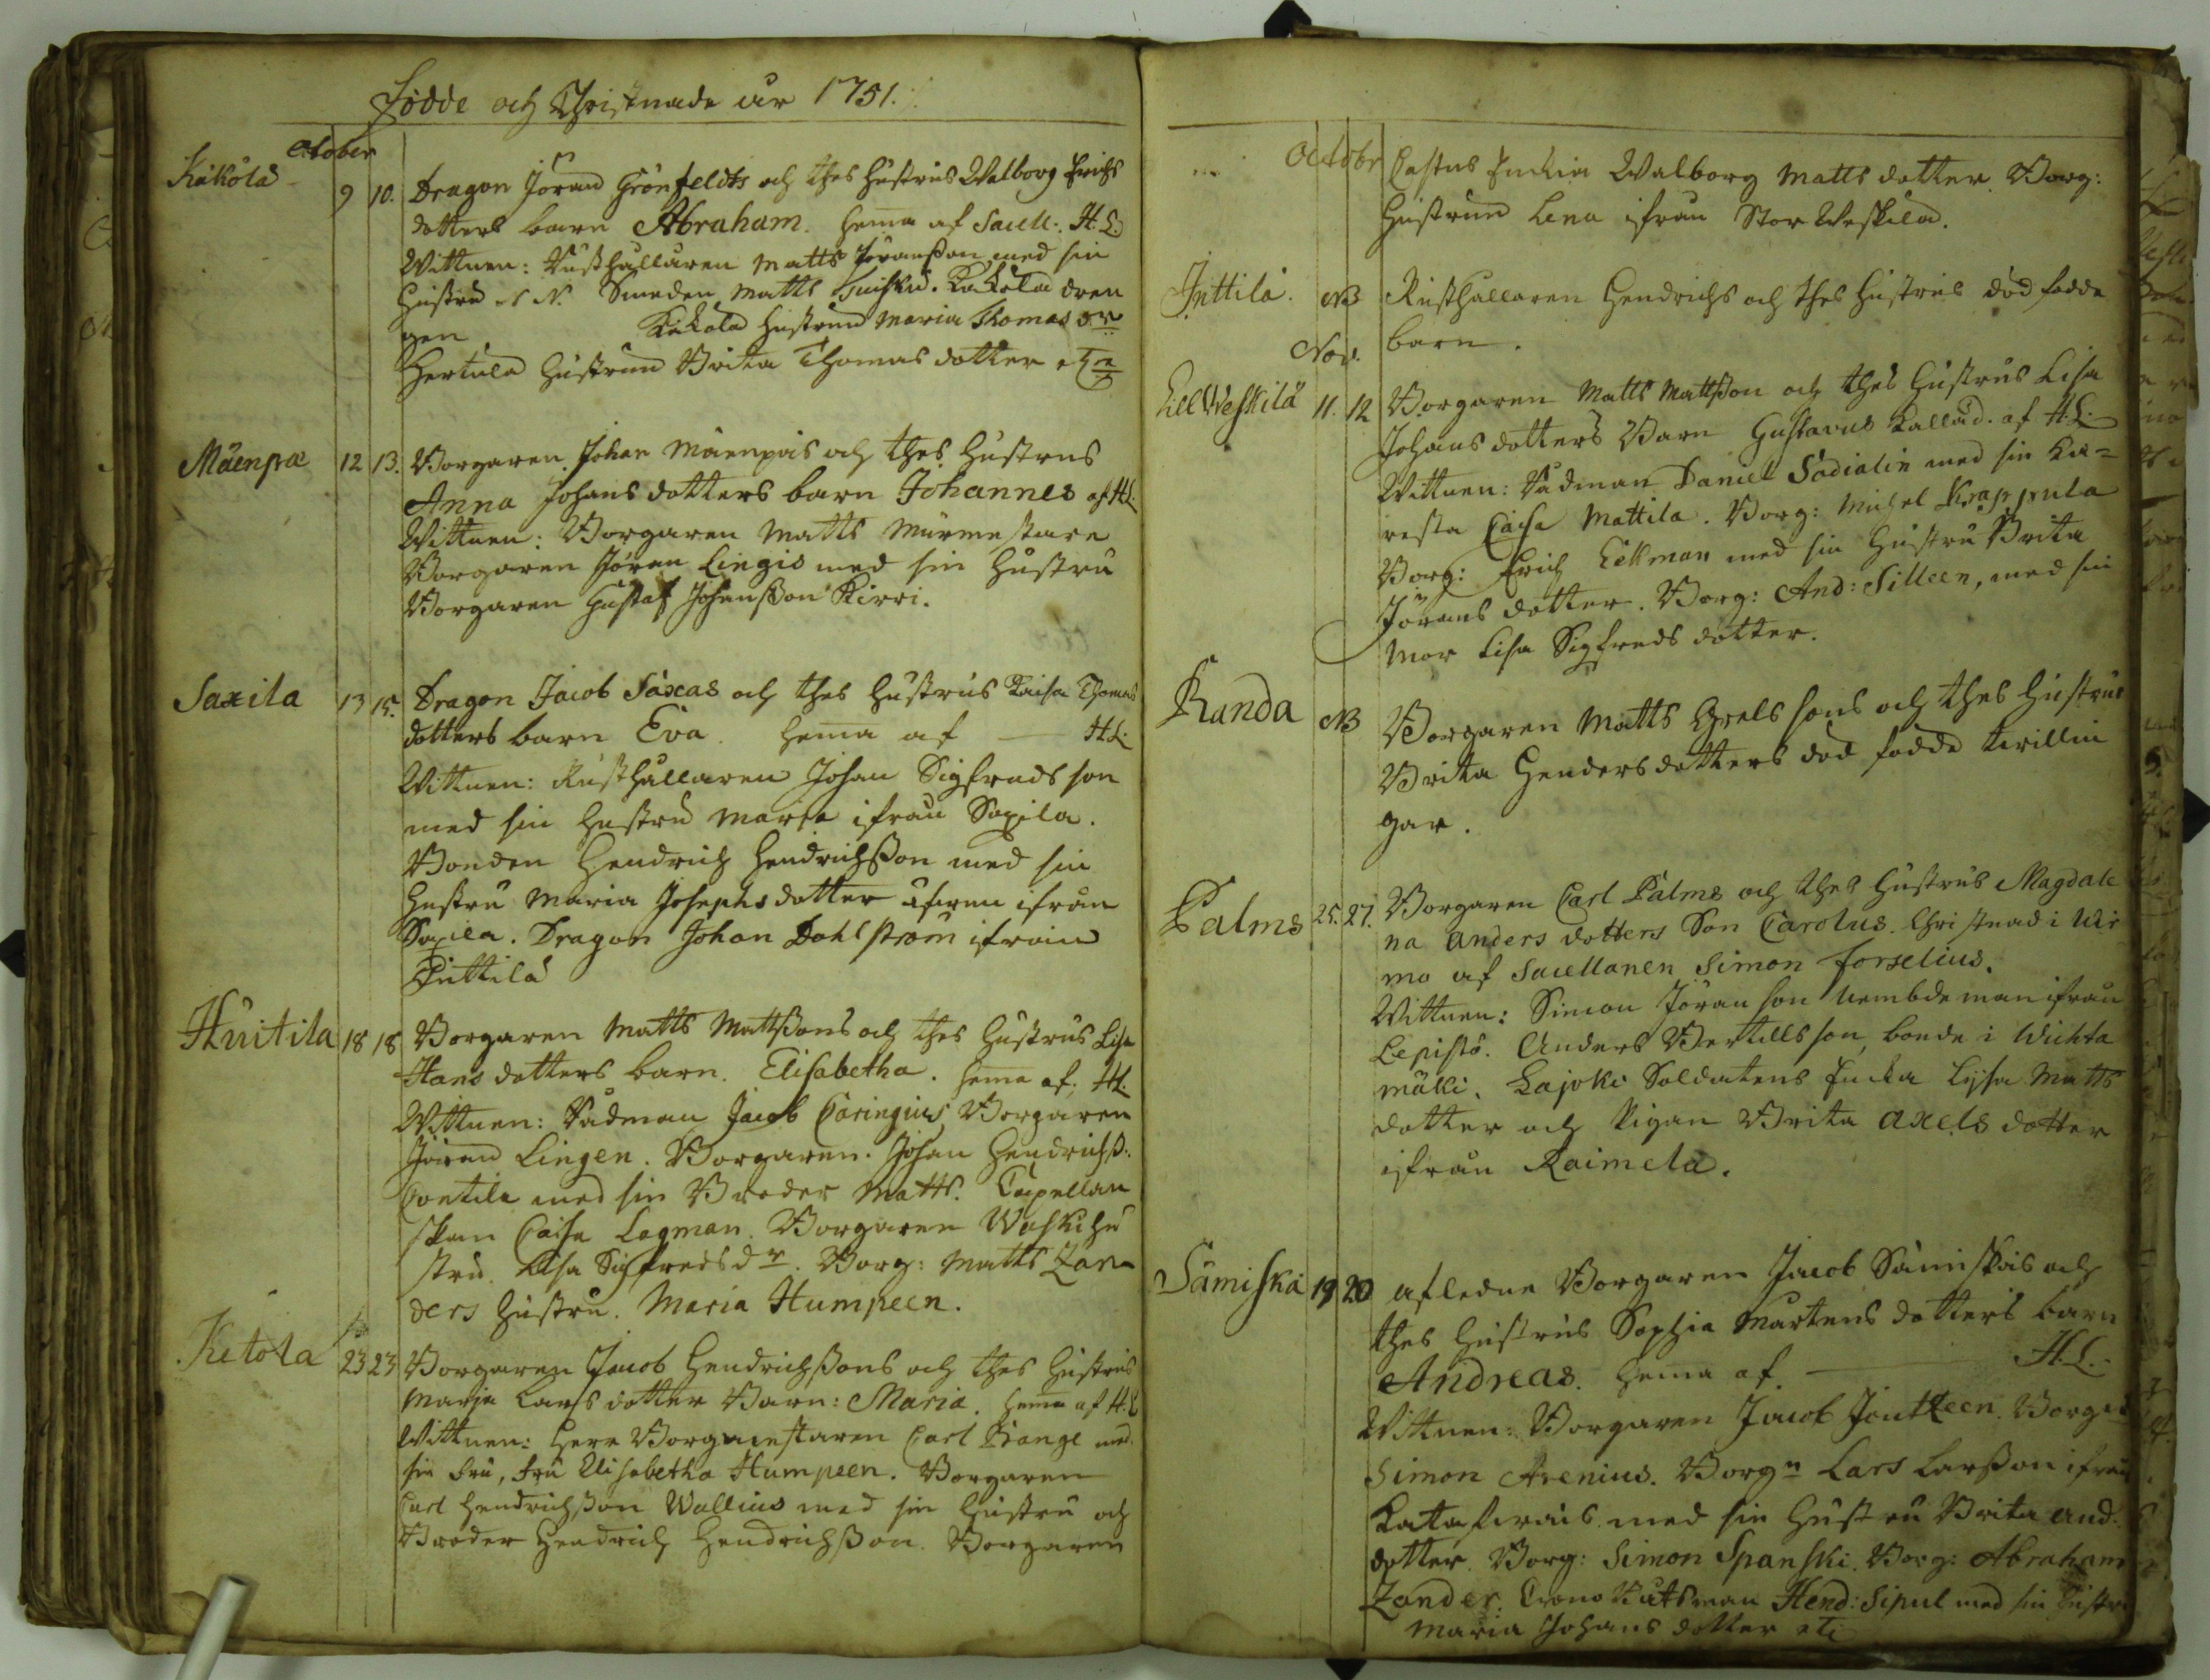 Födde och Christnade år 1751.
October
Käkölä 9 10. Dragon Jöran Grönfeldts och thes hustrus Walborg Erichs
dotters barn Abraham. hema af Sacell: H: L.
Wittnen: Rusthållaren Matts Jöransson med sin
hustru N N. Smeden Matts Kuisku. Käkölä dren
gen Käkölä hustrun Maria Thomas dr
Hertula hustrun Brita Thomas dotter etc
Mäenpä 12 13. Borgaren Johan Mäenpäs och thes hustrus
Anna Johans dotters barn Johannes af HL.
Wittnen: Borgaren Matts Murmestare
Borgaren Jöran Lingis med sin hustru
Borgaren Gustaf Johansson Kirri.
Saxila 13 15. Dragon Jacob Saxas och thes hustrus Kaisa Thomas
dotters barn Eva. hema af H.L.
Wittnen: Rusthållaren Johan Sigfreds son
med sin hustru Maria ifrån Saxila.
Bonden Hendrich Hendrichsson med sin
hustru Maria Josephs dotter ifrån
Saxila. Dragon Johan Dahlström ifrån
Puttila
Huitila 18 18 Borgaren Matts Mattssons och thes hustrus Lisa
Hans dotters barn. Elisabetha. hema af. HL.
Wittnen: Rådman Jacob Caringius, Borgaren
Jöran Lingen. Borgaren Johan Hendrichss:
Contila med sin Broder Matts. Capellan
skan Caisa Lagman. Borgaren Waski hu
stru. Lisa Sigfredsdr. Borg: Matts Zan
ders hustru. Maria Humpeen.
Ketola 23 23 Borgaren Jacob Hendrichssons och thes hustrus
Marja Lars dotter Barn: Maria. hema af H.L
Wittnen: Herr Borgmestaren Carl Prange med
sin fru, fru Elisabetha Humpeen. Borgaren
Carl Hendrichsson Wallius med sin hustru och
Broder Hendrich Hendrichsson. Borgaren
Octobr Castus Enckia Walborg Matts dotter. Borg:
hustrun Lena ifrån Stor Weskilä.
Inttilä. NB Rusthållaren Hendrichs och thes hustrus död födde
Nov. barn.
Lill Weskilä 11. 12 Borgaren Matts Mattsson och thes hustrus Lisa
Johans dotters Barn Gustavus kallad. af H.L.
Wittnen: Rådman Daniel Sadialin med sin Kä=
resta Caisa Mattila. Borg: Michel Krappula
Borg: Erich Eekman med sin hustru Brita
Jörans dotter. Borg: And: Silleen, med sin
Mor Lisa Sigfreds dotter.
Randa NB Borgaren Matts Grels sons och thes hustrus
Brita Hendersdotters död födde twillin
gar.
Palms 25. 27. Borgaren Carl Palms och thes hustrus Magdale
na Anders dotters Son Carolus. Christnad i Wir
mo af Sacellanen Simon Forselius.
Wittnen: Simon Jöran son nembdeman ifrån
Lepistö. Anders Bertills son, bonde i Wichta
mäki. Lajoki Soldatens Encka Lysa Matts
dotter och Pigan Brita Axels dotter
ifrån Raimela.
Sämiskä 19 20 afledne Borgaren Jacob Sämiskäs och
thes hustrus Sophia Martens dotters barn
Andreas. hema af H.L.
Wittnen: Borgaren Jacob Jontteen. Borg
Simon Arenius. Borgn Lars Larsson ifrån
med sin hustru Brita And:
dotter. Borg: Simon Spanski. Borg: Abraham
Zander. Crono Båtsman Hend: Sipul med sin hustru
Maria Johans dotter etc